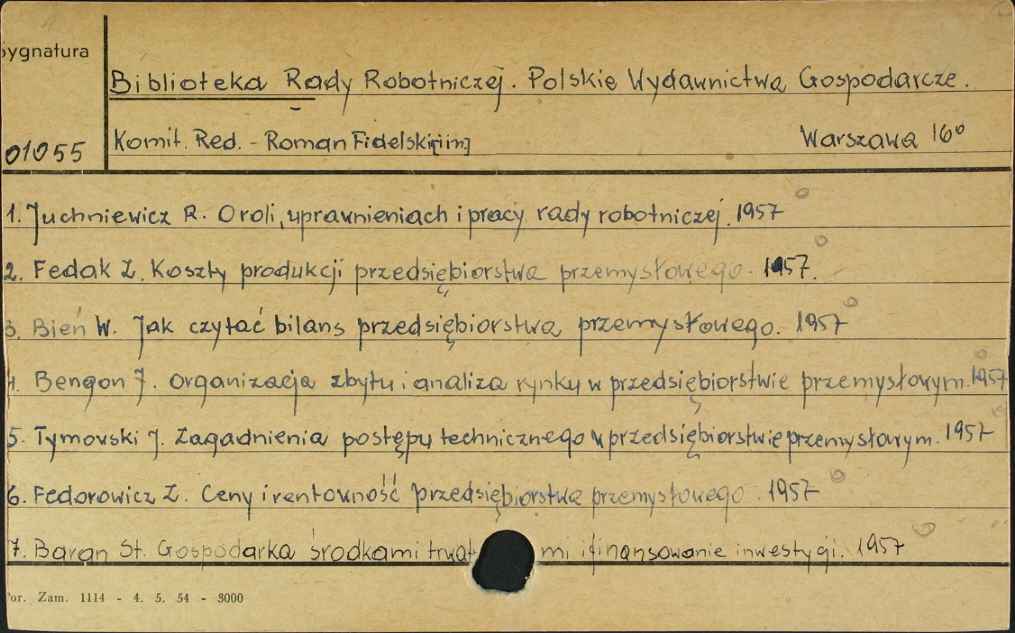 Sygnatura
Biblioteka Rady Robotniczej. Polskie Wydawnictwa Gospodarcze.
01055
Komit. Red. - Roman Fidelski [i in]
Warszawa 16°
1. Juchniewicz R. O roli, uprawnieniach i pracy rady robotniczej. 1957
2. Fedak Z. Koszty produkcji przedsiębiorstwa przemysłowego. 1957.
3. Bień W. Jak czytać bilans przedsiębiorstwa przemysłowego. 1957
4. Bengon J. Organizacja zbytu i analiza rynku w przedsiębiorstwie przemysłowym. 1957
5. Tymowski J. Zagadnienia postępu technicznego w przedsiębiorstwie przemysłowym. 1957
6. Fedorowicz Z. Ceny i rentowność przedsiębiorstwa przemysłowego. 1957
7. Baran St. Gospodarka środkami trwał mi i finansowanie inwestycji. 1957
Por. Zam. 1114 - 4. 5. 54 - 3000